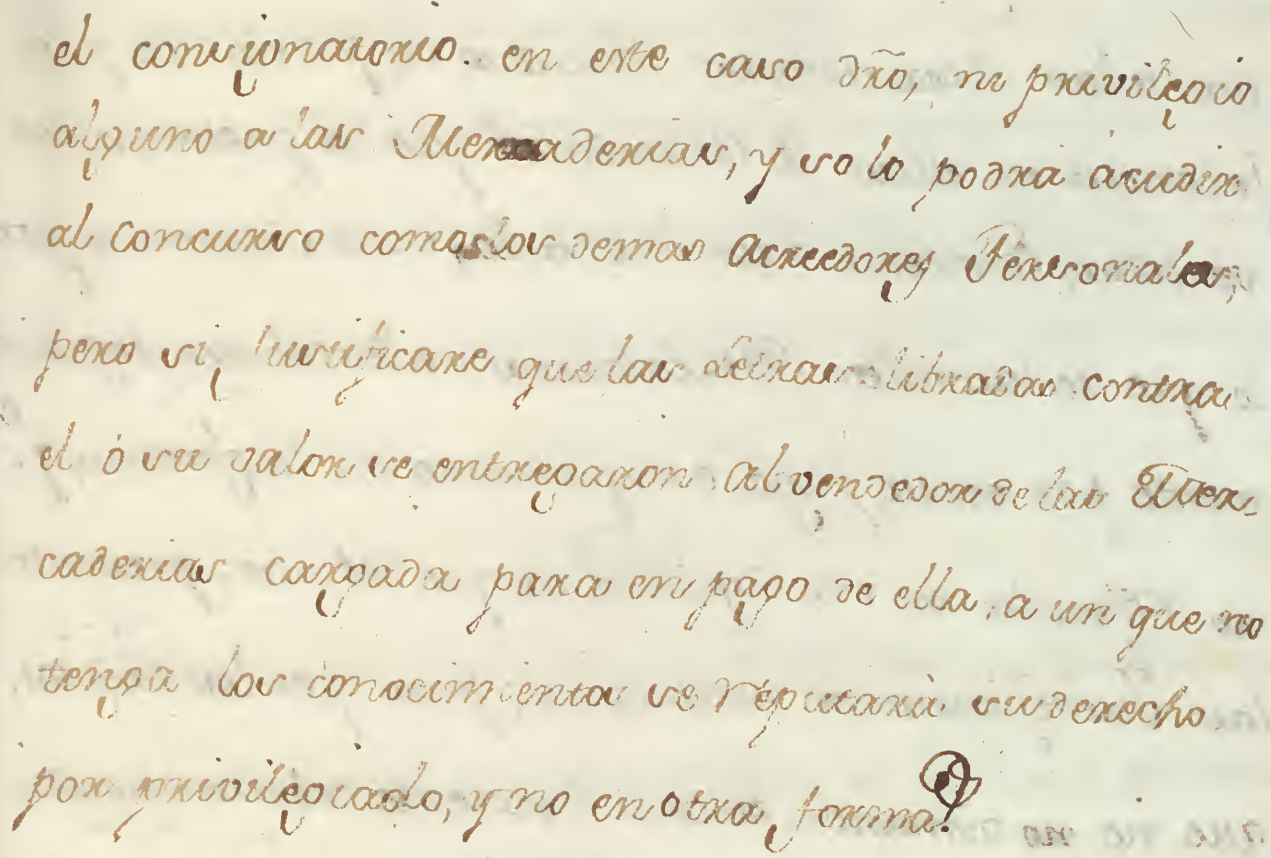 el consignatorio. en este caso dr̃o, ni privilegio
alguno a las Mercaderias, y solo podra acudir
al Concurso como los demas Acreedores Personales,
pero si, justificare que las Letras libradas contra
el ó su valor se entregaron al vendedor de las Mer-
caderias cargada para en pago de ella, a un que no
tenga los conocimientos se reputarà su derecho
por privilegiado, y no en otra forma.